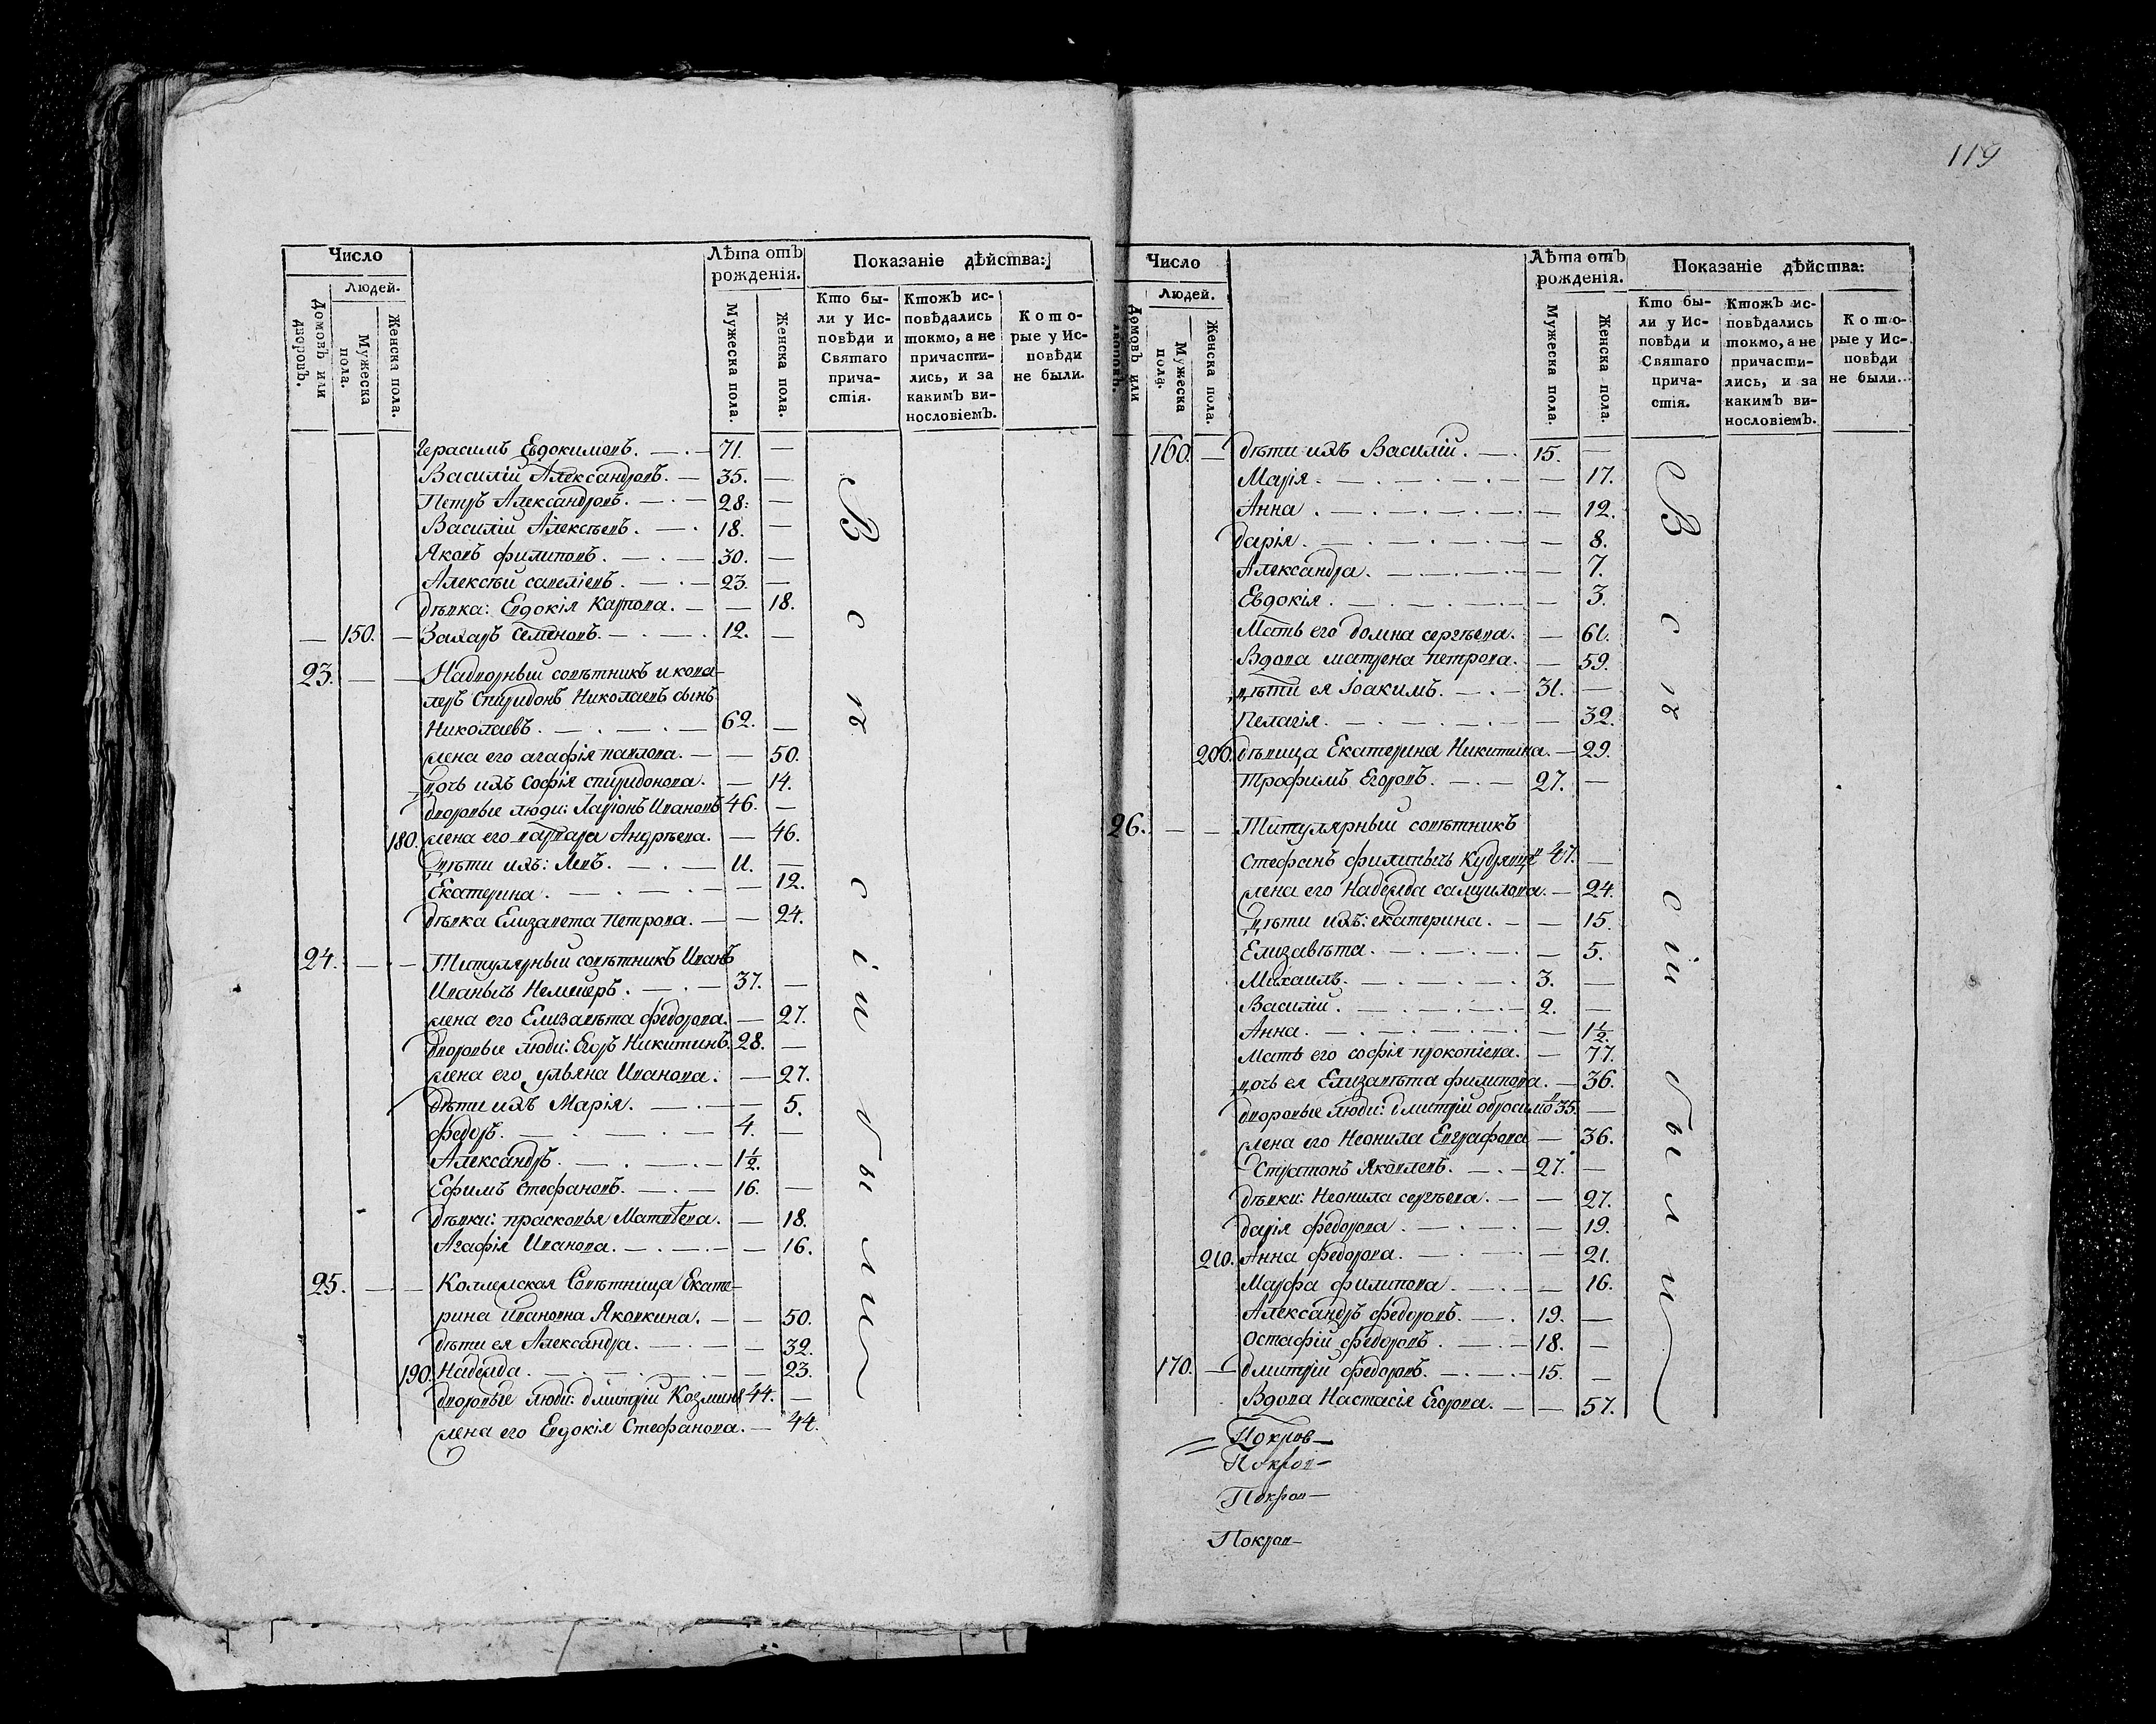 119
Число
Людей.
Домовъ или дворовъ.
Мужеска пола.
Женска пола.
Лѣта отъ рожденія.
Мужеска пола.
Женска пола.
Показаніе дѣйства:
Кто бы-
ли у Ис-
повѣди и
Святаго
прича-
стія.
Ктожъ ис-
повѣдались
токмо, а не
причасти-
лись, и за
какимъ ви-
нословіемъ.
Кото-
рые у Ис-
повѣди
не были.
Герасимъ Евдокимовъ. 71. —
Василій Александровъ. 35. —
Петръ Александровъ. 28. —
Василій Алексѣевъ. 18. —
Яковъ филиповъ. 30. —
Алексѣй савеліевъ. 23. —
дѣвка: Евдокія Карпова. — 18.
— 150. — Захаръ семеновъ. 12. —
23. — — Надворный совѣтникъ и кова-
леръ Спиридонъ Николаевъ сынъ
Николаевъ. 62. —
жена его агафія павлова. — 50.
дочь ихъ Софія спиридонова. — 14.
дворовые люди: Ларіонъ Ивановъ 46. —
180. жена его варвара Андрѣева. — 46.
дѣти ихъ: Левъ. 11. —
Екатерина. — 12.
дѣвка Елизавета петрова. — 24.
24. — — Титулярный совѣтникъ Иванъ
Иванычь Немчеръ. 37. —
жена его Елизавѣта федорова. — 27.
дворовые люди: Егоръ Никитинъ. 28. —
жена его ульяна Иванова. — 27.
дѣти ихъ Марія. — 5.
федоръ. 4. —
Александръ. 1½.
Ефимъ стефановъ. 16. —
дѣвки: прасковья Матвѣева. — 18.
Агафія Иванова. — 16.
25. — — Коллежская Совѣтница Екате-
рина Ивановна Яковкина. — 50.
дѣти ея Александра. — 32.
190. Надежда. — 23.
дворовые люди: дмитрій Козминъ 44. —
жена его Евдокія Стефанова. — 44.
В с ѣ с і и б ы л и
Число
Людей.
Домовъ или дворовъ.
Мужеска пола.
Женска пола.
Лѣта отъ рожденія.
Мужеска пола.
Женска пола.
Показаніе дѣйства:
Кто бы-
ли у Ис-
повѣди и
Святаго
прича-
стія.
Ктожъ ис-
повѣдались
токмо, а не
причасти-
лись, и за
какимъ ви-
нословіемъ.
Кото-
рые у Ис-
повѣди
не были.
160. — дѣти ихъ Василій. 15. —
Марія. — 17.
Анна. — 12.
дарія. — 8.
Александра. — 7.
Евдокія. — 3.
Мать его домна сергѣева. — 61.
Вдова матрена петрова. — 59.
дѣти ея Іоакимъ. 31. —
Пелагія. — 32.
200. дѣвица Екатерина Никитина. — 29.
Трофимъ Егоровъ. 27. —
26. — — Титулярный совѣтникъ
Стефанъ филипычь 47. —
жена его Надежда самуилова. — 24.
дѣти ихъ: екатерина. — 15.
Елизавѣта. — 5.
Михаилъ. 3. —
Василій. 2. —
Анна. — 1½.
Мать его софія прокопіева. — 77.
дочь ея Елизавѣта филипова. — 36.
дворовые люди: дмитрій 35. —
жена его Неонила Евграфова — 36.
Яковлевъ. 27. —
дѣвки: Неонила сергѣева. — 27.
дарія федорова. — 19.
210. Анна федорова. — 21.
Марфа филипова. — 16.
Александръ федоровъ. 19. —
Остафій федоровъ. 18. —
170. — дмитрій федоровъ. 15. —
Вдова Настасія Егорова. — 57.
В с ѣ с і и б ы л и
Покров—
Покров—
Покров—
Покров—